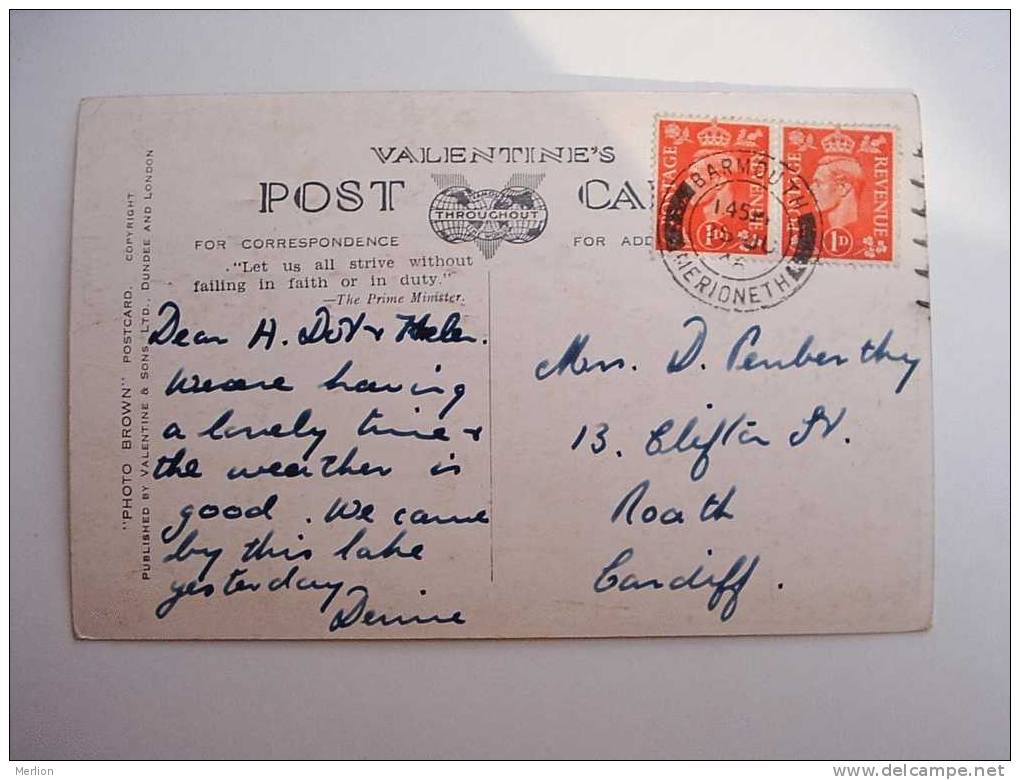 VALENTINE'S
POST CA
FAMOUS
THROUGHOUT
FOR CORRESPONDENCE
FOR ADD
"Let us all strive without
failing in faith or in duty."
—The Prime Minister.
Dear A. Dot & Helen.
We are having
a lovely time &
the weather is
good. We came
by this lake
yesterday
Mrs. D. Penberthy
13. Clifton St.
Roath
Cardiff.
"PHOTO BROWN" POSTCARD. COPYRIGHT
PUBLISHED BY VALENTINE & SONS, LTD., DUNDEE AND LONDON
POSTAGE REVENUE
1D
POSTAGE REVENUE
1D
BARMOUTH
1 45 PM
46
MERIONETH
Merlion
www.delcampe.net